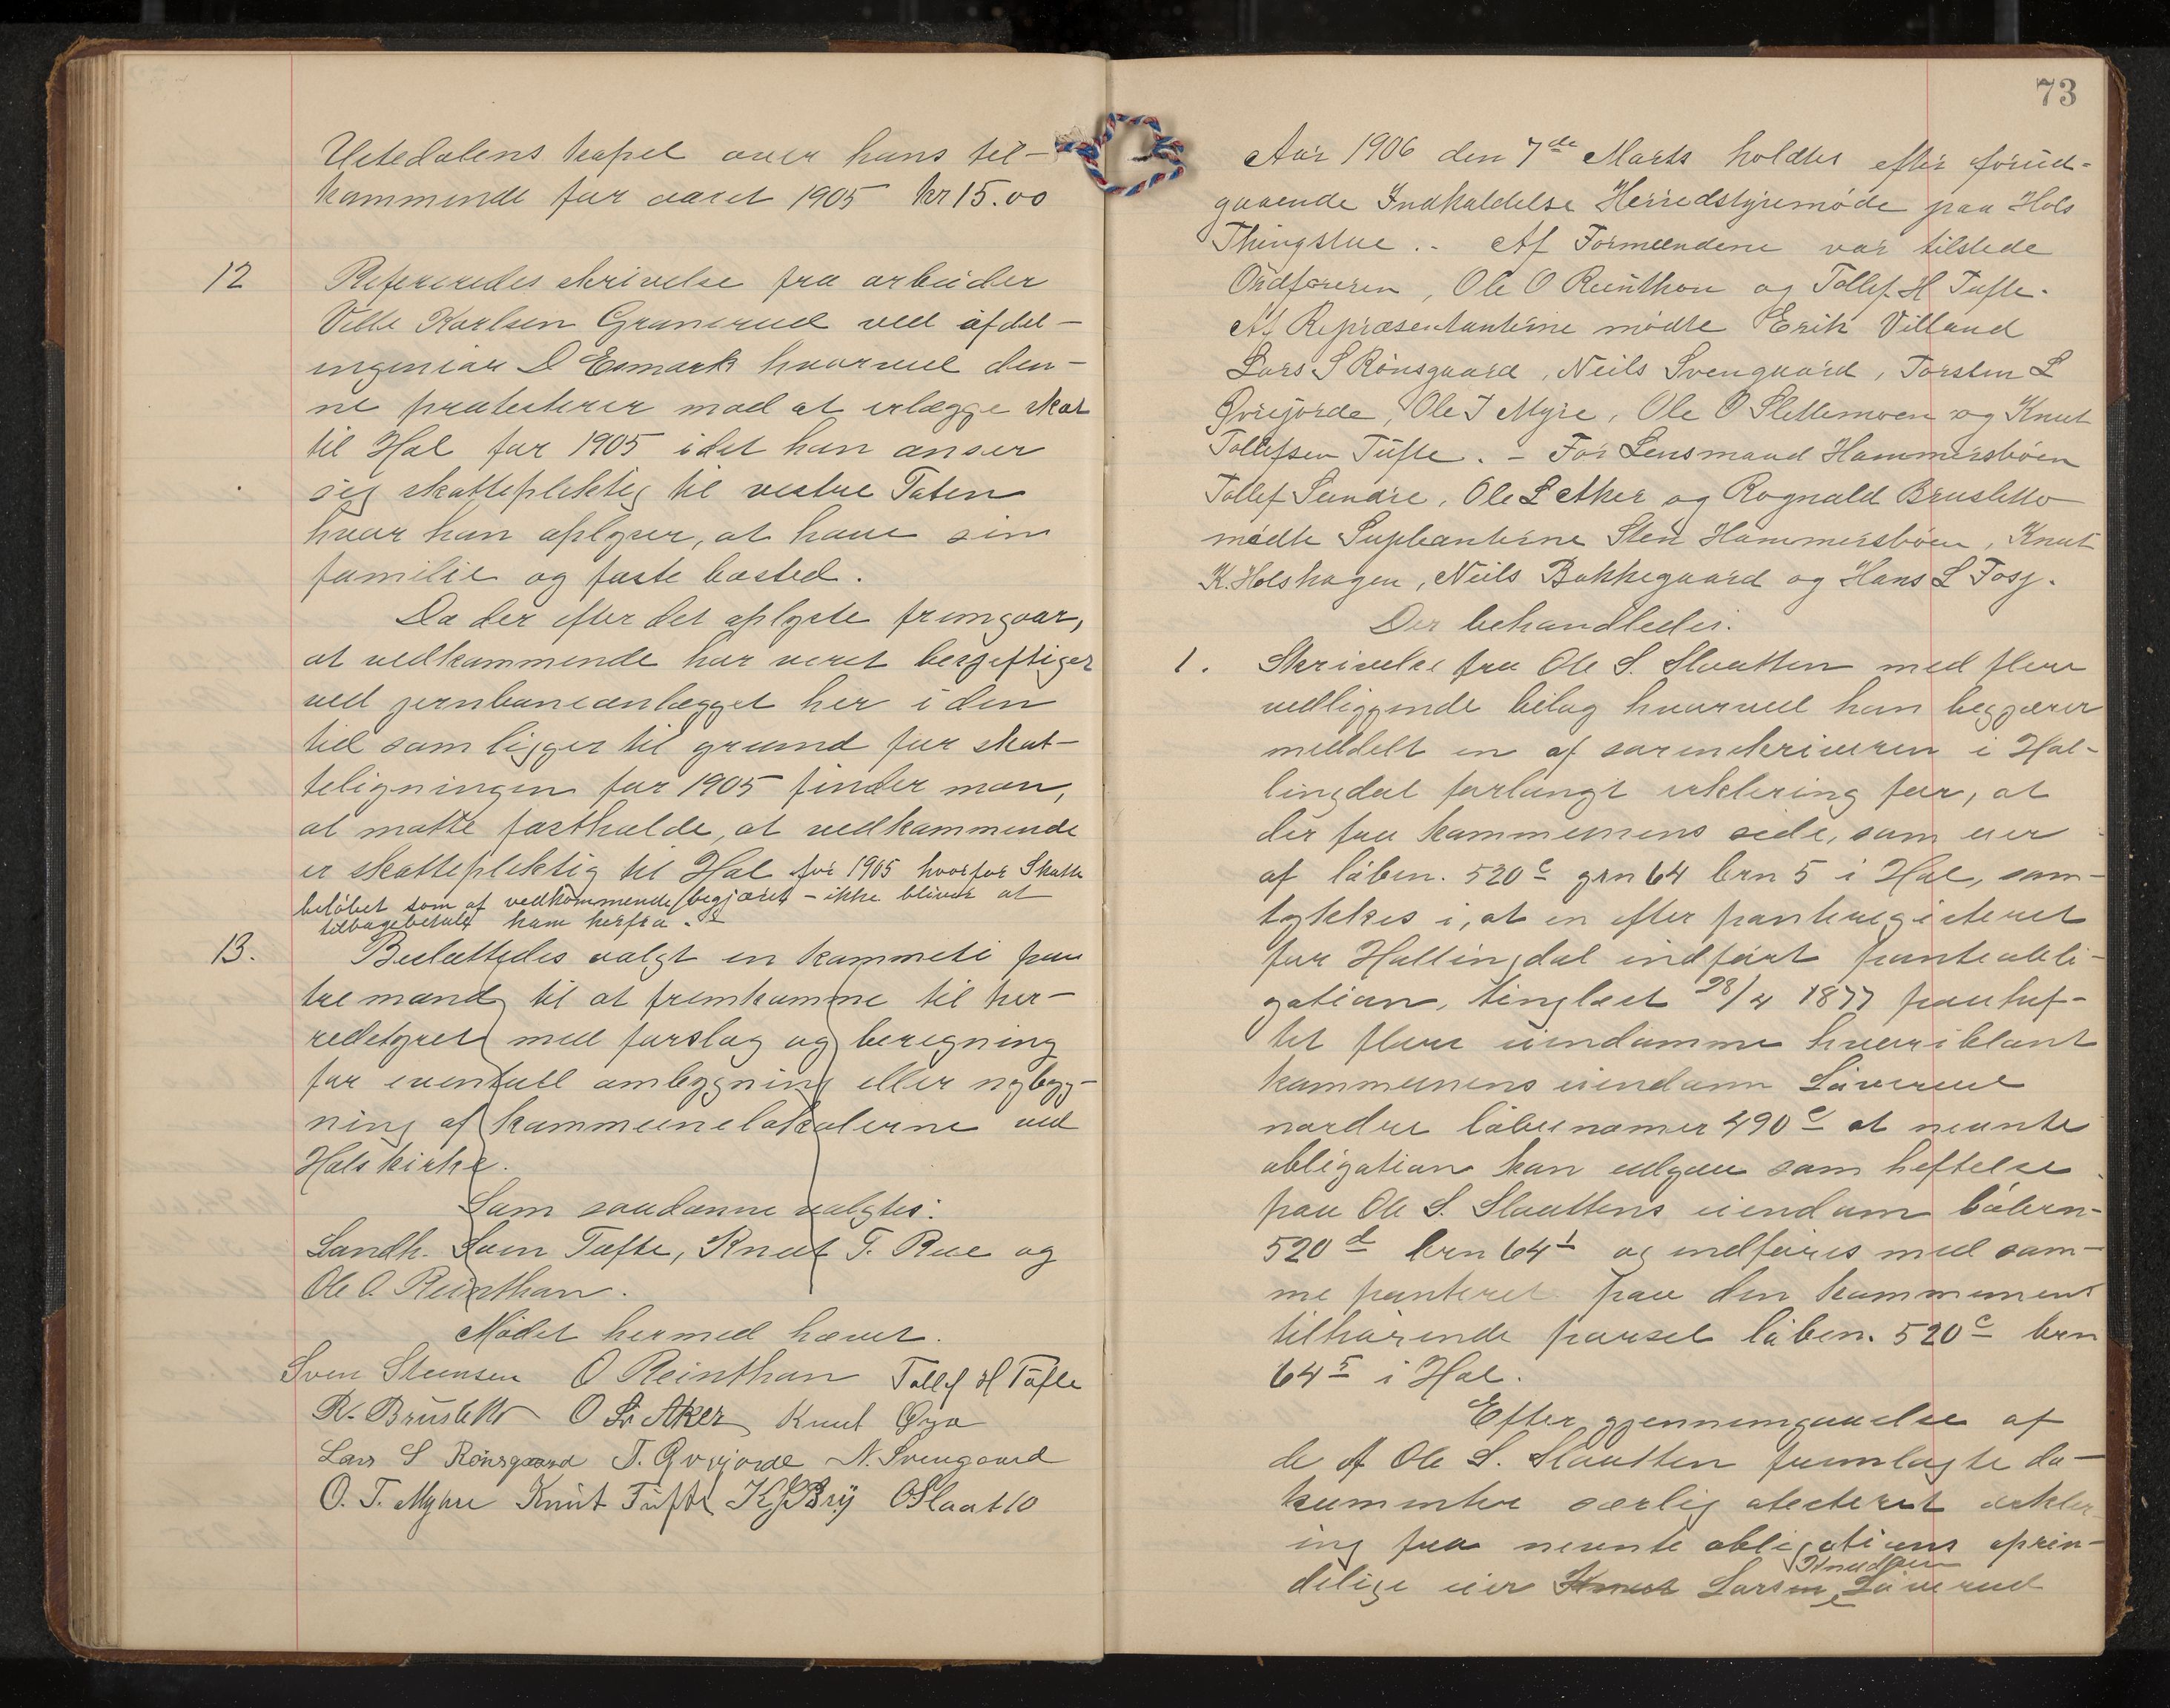 Ustedalens kapel over hans til-
kommende for aaret 1905 kr 15.00
12 Refereredes skrivelse fra arbeider
Ville Karlsen Granerud ved afdel-
ingeniør D Esmark hvorved den-
ne protesterer mod at erlægge skat
til Hol for 1905 idet han anser
sig skattepliktig til vestre Toten
hvor han oplyser, at have sin
familie og faste bosted.
Da der efter det oplyste fremgaar,
at vedkommende har veret beskjeftiget
ved jernbaneanlægget her i den
tid som ligger til grund for skat-
teligningen for 1905 finder man,
at maatte fastholde, at vedkommende
er skattepliktig til Hol for 1905 hvorfor Skatte
beløbet som af vedkommende begjæret - ikke bliver at
tilbagebetale ham herfra. -
13. Besluttedes valgt en kommeti paa
tre mand til at fremkomme til her-
redstyret med forslag og beregning
for eventuell ombygning eller nybyg-
ning af kommunelokalerne ved
Hols kirke.
Som saadanne valgtes:
Landh. Sven Tufte, Knut T. Rue og
Ole O. Reinthon.
Mødet hermed hævet.
Sven Steensen O Reinthon Tollef H Tufte
R. Brusletto O L Aker Knut Øyo
Lars S Rønsgaard T. Qvrejorde N. Svengaard
O. T. Myhre Knut Tufte K Bry O Slaatto
73
Aar 1906 den 7de Marts holdtes efter forud-
gaaende Indkaldelse Herredstyremøde paa Hols
Thingstue. - Af Formændene var tilstede
Ordføreren, Ole O Reinthon og Tollef H Tufte.
Af Repræsentanterne mødte Erik Villand
Lars S Rønsgaard, Neils Svengaard, Torsten L
Qvrejorde, Ole T Myre, Ole O Slettemoen og Knut
Tollefsen Tufte. - For Lensmand Hammersbøen
Tollef Sundre, Ole L Aker og Rognald Brusletto
mødte Suplanterne Sten Hammersbøen, Knut
K. Holshagen, Neils Bakkegaard og Hans L Fosz.
Der behandledes:
1. Skrivelse fra Ole S. Slaatten med flere
vedliggende bilag hvorved han begjærer
meddelt en af sorenskriveren i Hal-
lingdal forlangt erklering for, at
der fra kommunens side, som eier
af løben. 520c grn 64 brn 5 i Hol, sam-
tykkes i, at en efter panteregisteret
for Hallingdal indført panteobli-
gation, tinglæst 28/4 1877 paahef-
tet flere eiendomme hvoriblant
kommunens eiendom Låverud
nordre løbenomer 490c at nevnte
obligation kan udgaa som heftelse
paa Ole S. Slaattens eiendom løben-
520d brn 64 1 og indføres med sam-
me panteret paa den kommunen
tilhørende parsel løben. 520c brn
64 5 i Hol.
Efter gjennemgaaelse af
de af Ole S. Slaatten fremlagte do-
kumenter særlig atesteret erkler-
ing fra nevnte obligations oprin-
Knudsen
delige eier Knut Larsen Låverud